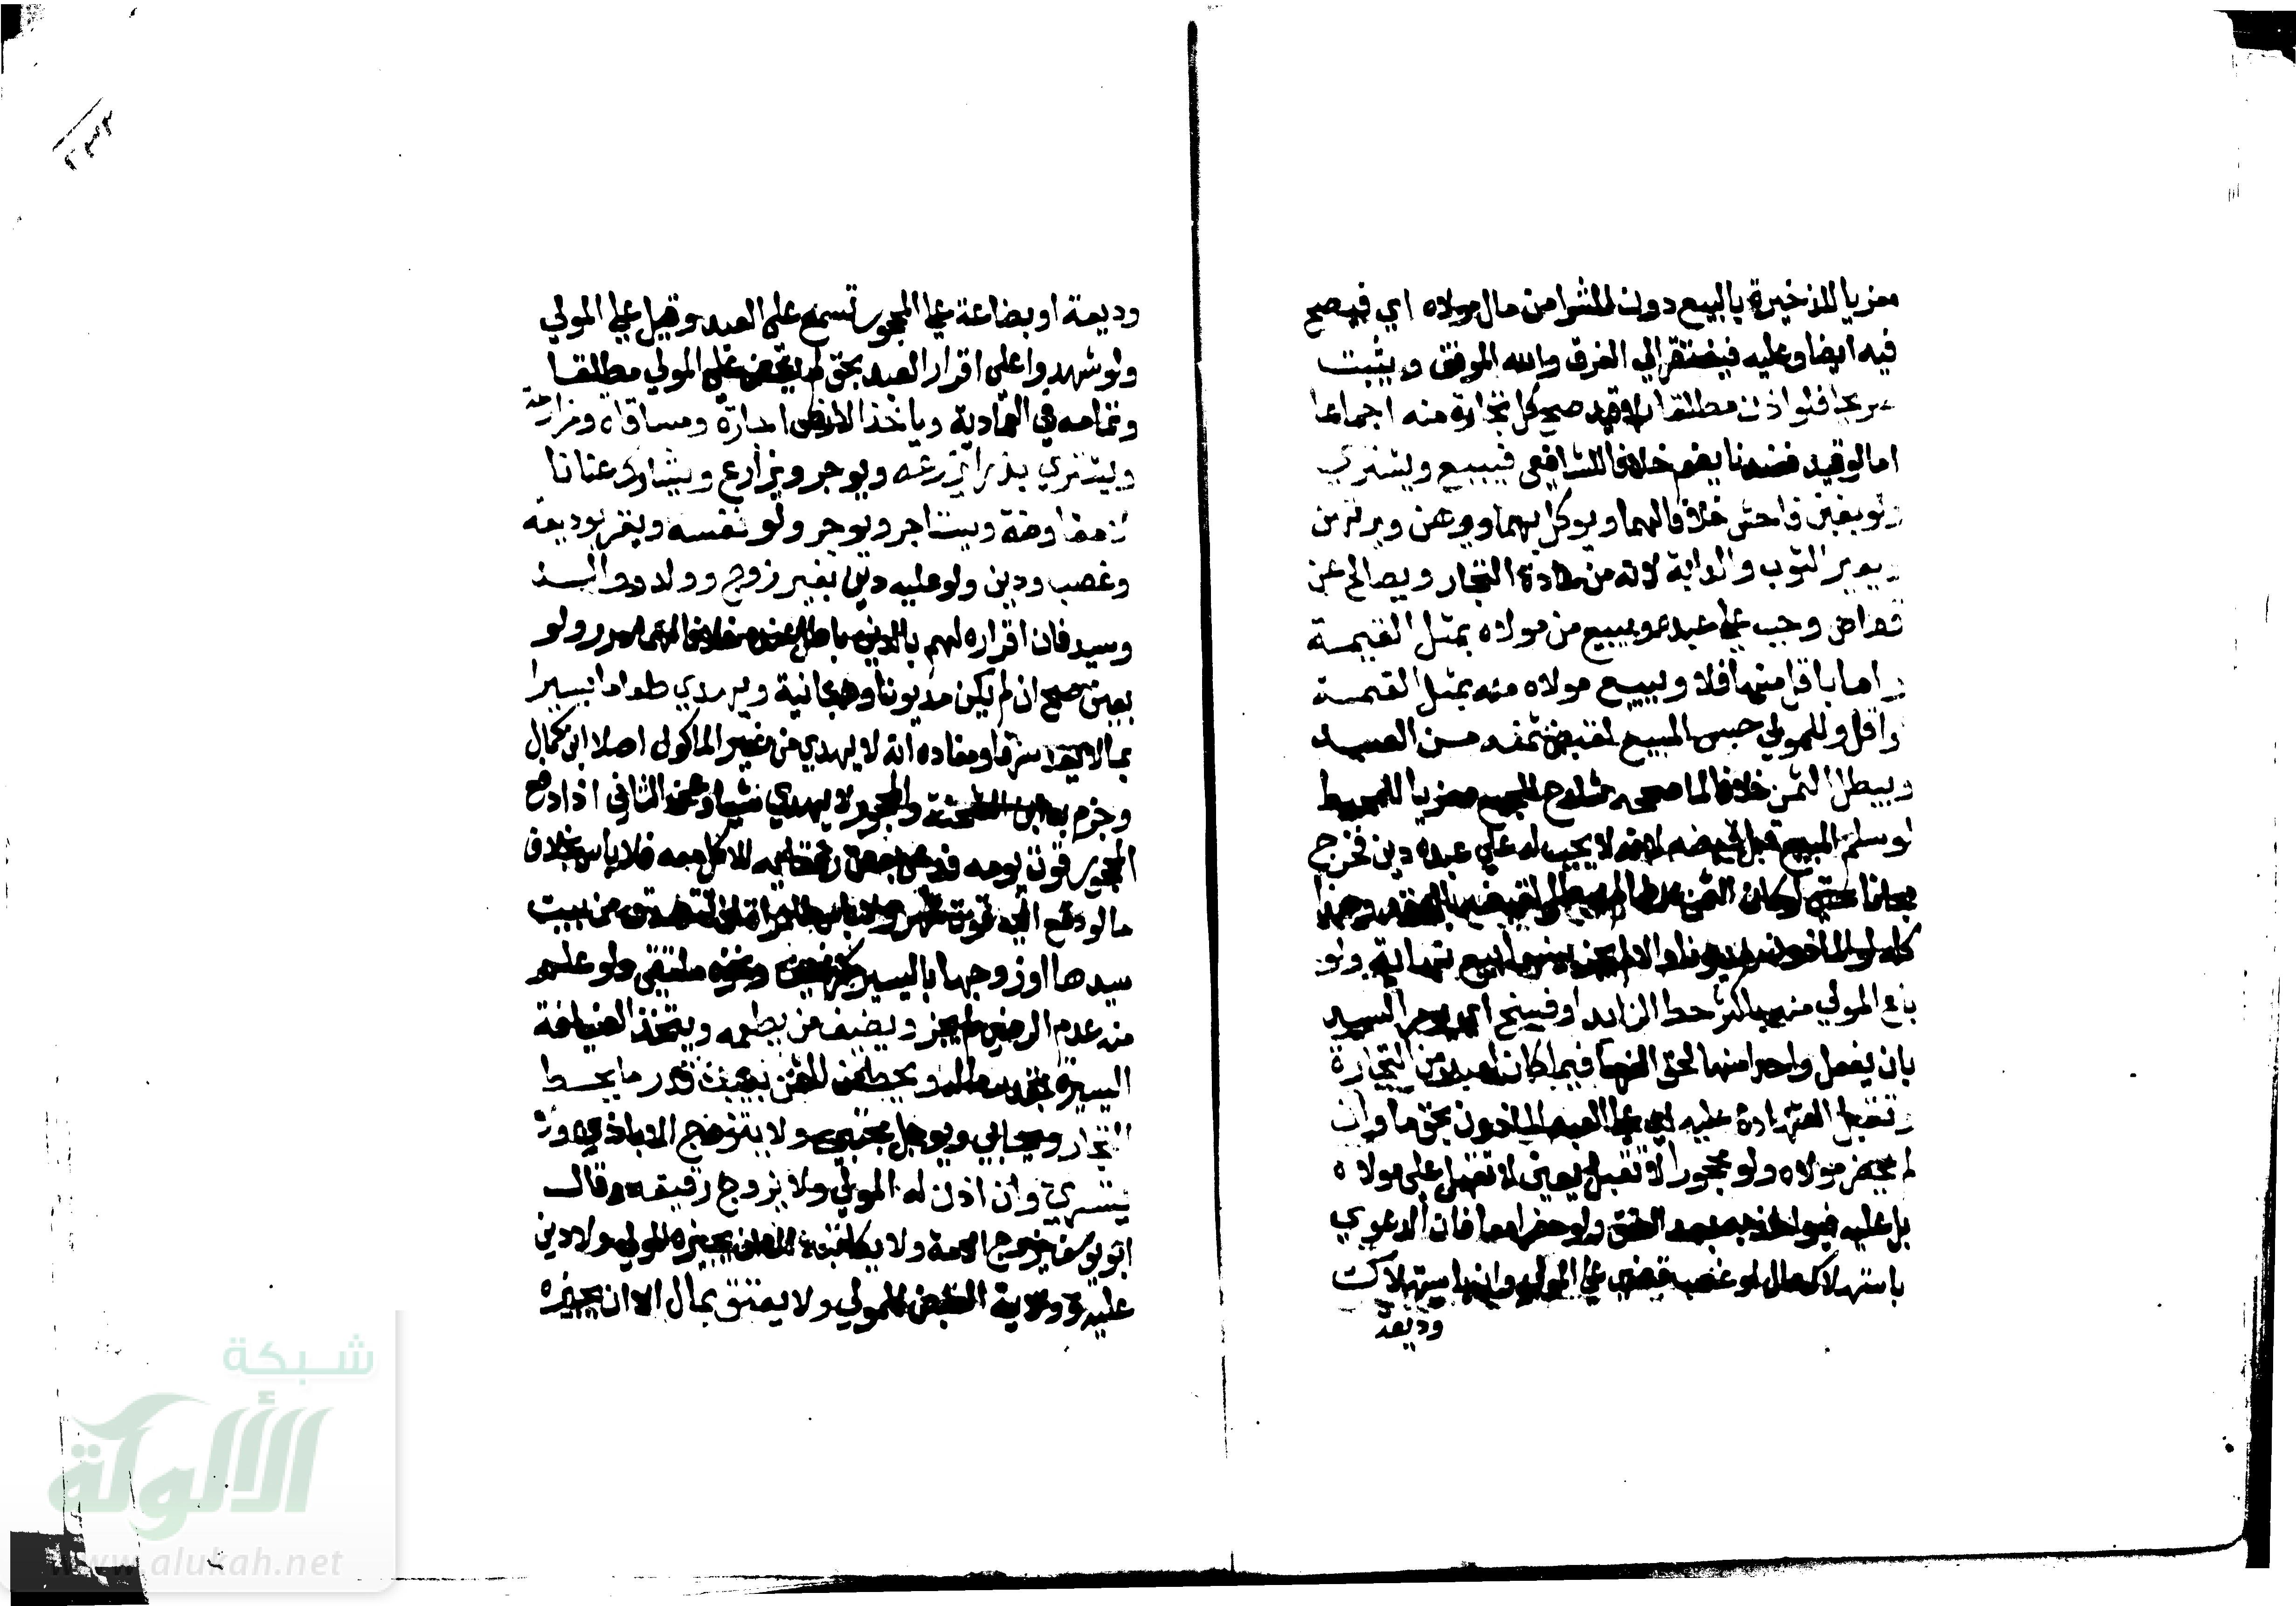 معزيا للذخيرة بالبيع دون الشرا من مال مولاه اي فيصح
فيه ايضا وعليه فيفتقر الي الفرق والله الموفق ويثبت
صريحا فلو اذن مطلقا بلا قيد صح كل تجارة منه اجماعا
اما لو قيد فعندنا يعم خلافا للشافعي فيبيع ويشتري
ولو بغبن فاحش خلافا لهما ويوكل بهما ويرهن ويرتهن
ويعير الثوب والدابة لانه من عادة التجار ويصالح عن
قصاص وجب علي عبده ويبيع من مولاه بمثل القيمة
واما باقل منها فلا ويبيع مولاه منه بمثل القيمة
او اقل وللمولي حبس المبيع لقبض ثمنه من العبد
ويبطل الثمن خلافا لما صححه شارح المجمع معزيا للمحيط
لو سلم المبيع قبل قبضه لانه لا يجب له علي عبده دين فخرج
مجانا حتي لو كان الثمن عرضا لم يبطل لتعينه بالعقد وهذا
كله لو الماذون مديونا والا لم يجز بينهما بيع نهاية ولو
باع المولي منه باكثر حط الزايد او فسخ اي يومر السيد
بان يفعل واحدا منهما لحق الغرما فيما كان العبد من التجارة
وتقبل الشهادة عليه اي علي العبد الماذون بحق ما وان
لم يحضر مولاه ولو محجورا لا تقبل يعني لا تقبل علي مولاه
بل عليه فيواخذ به بعد العتق ولو حضرا معا فان الدعوي
باستهلاك مال او غصب قضي علي المولي وان باستهلاك
وديعة
وديعة او بضاعة علي المحجور تسمع علي العبد وقيل علي المولي
ولو شهدوا علي اقرار العبد بحق لم يقض علي المولي مطلقا
وتمامه في العمادية وياخذ الارض اجارة ومساقاة ومزارعة
ويشتري بذرا يزرعه ويوجر ويزارع ويشارك عنانا
لا مفاوضة ويستاجر ويوجر ولو نفسه ويقر بوديعة
وغصب ودين ولو عليه دين بغير زوج وولد ووالد
وسيد فان اقراره لهم بالدين باطل عنده خلافا لهما درر ولو
بعين صح ان لم يكن مديونا وهبانية ويهدي طعاما يسيرا
بما لا يعد سرفا ومفاده انه لا يهدي من غير الماكول اصلا ابن كمال
وجزم به ابن الشحنة والمحجور لا يهدي شيا وعن الثاني اذا دفع
المحجور قوت يومه فدعي بعض رفقايه للاكل معه فلا باس بخلاف
ما لو دفع اليه قوت شهر ولا باس للمراة ان تتصدق من بيت
سيدها او زوجها باليسير كرغيف ونحوه ملتقي ولو علم
منه عدم الرضي لم يجز ويضيف من يطعمه ويتخذ الضيافة
اليسيرة بقدر ماله ويحط من الثمن بعيب قدر ما يحط
التجار ويحابي ويوجل مجتبي ولا يتزوج الا باذن ولا
يتسري وان اذن له المولي ولا يزوج رقيقه وقال
ابو يوسف يزوج الامة ولا يكاتبه الا ان يجيزه المولي ولا دين
عليه وولاية القبض للمولي ولا يعتق بمال الا ان يجيزه
شبكة
الألوكة
www.alukah.net